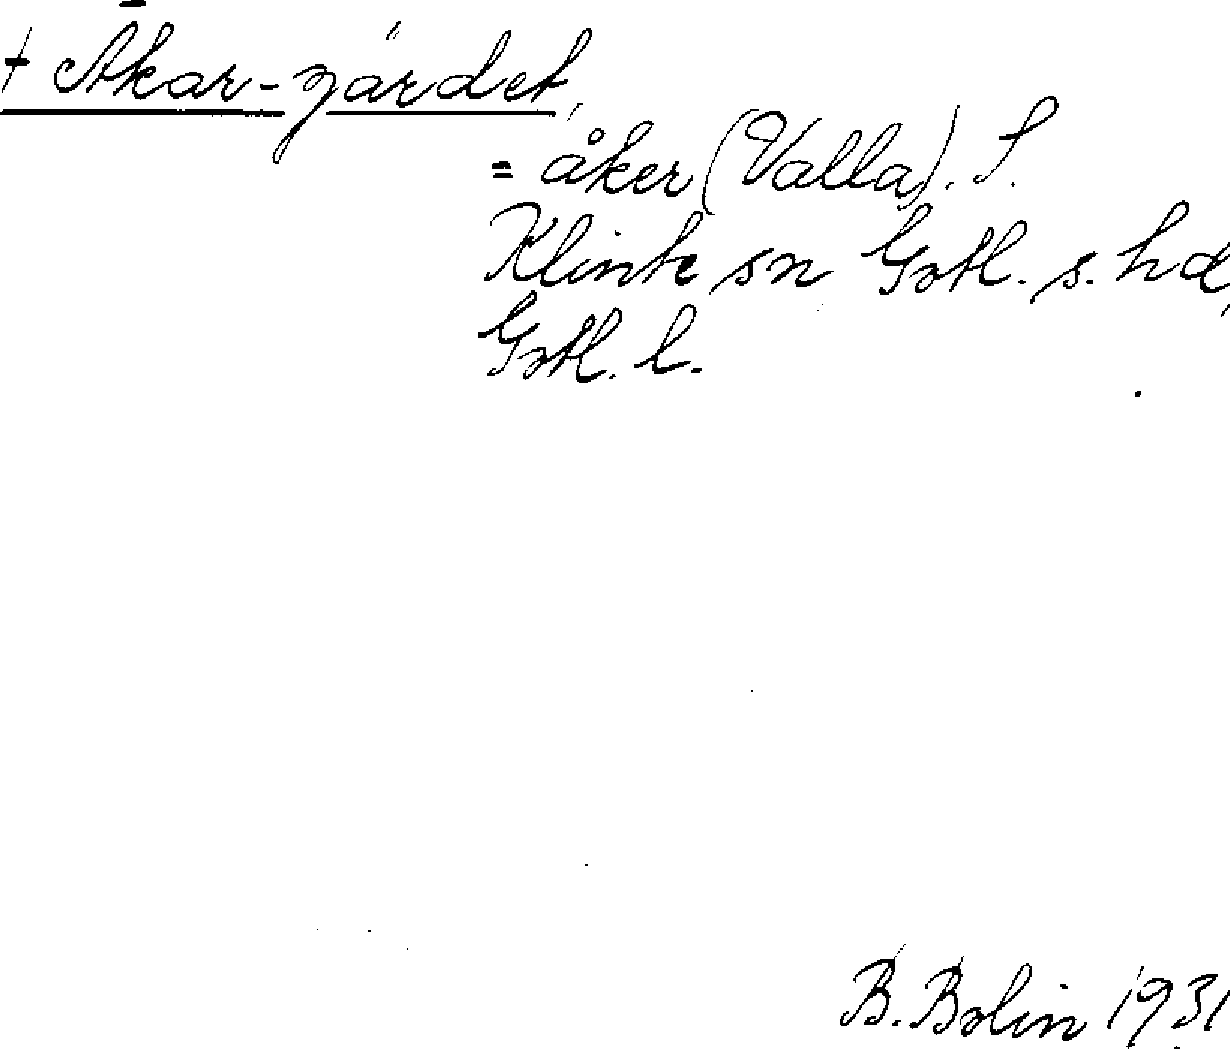 † Åkar-gärdet,
= åker (Valla). S.
Klinte sn Gotl. s. hd,
Gotl. l.
B. Bolin 1931